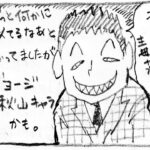 と何かに
てるなあと
ってましたが
ョージ
秋山キャラ
かも。